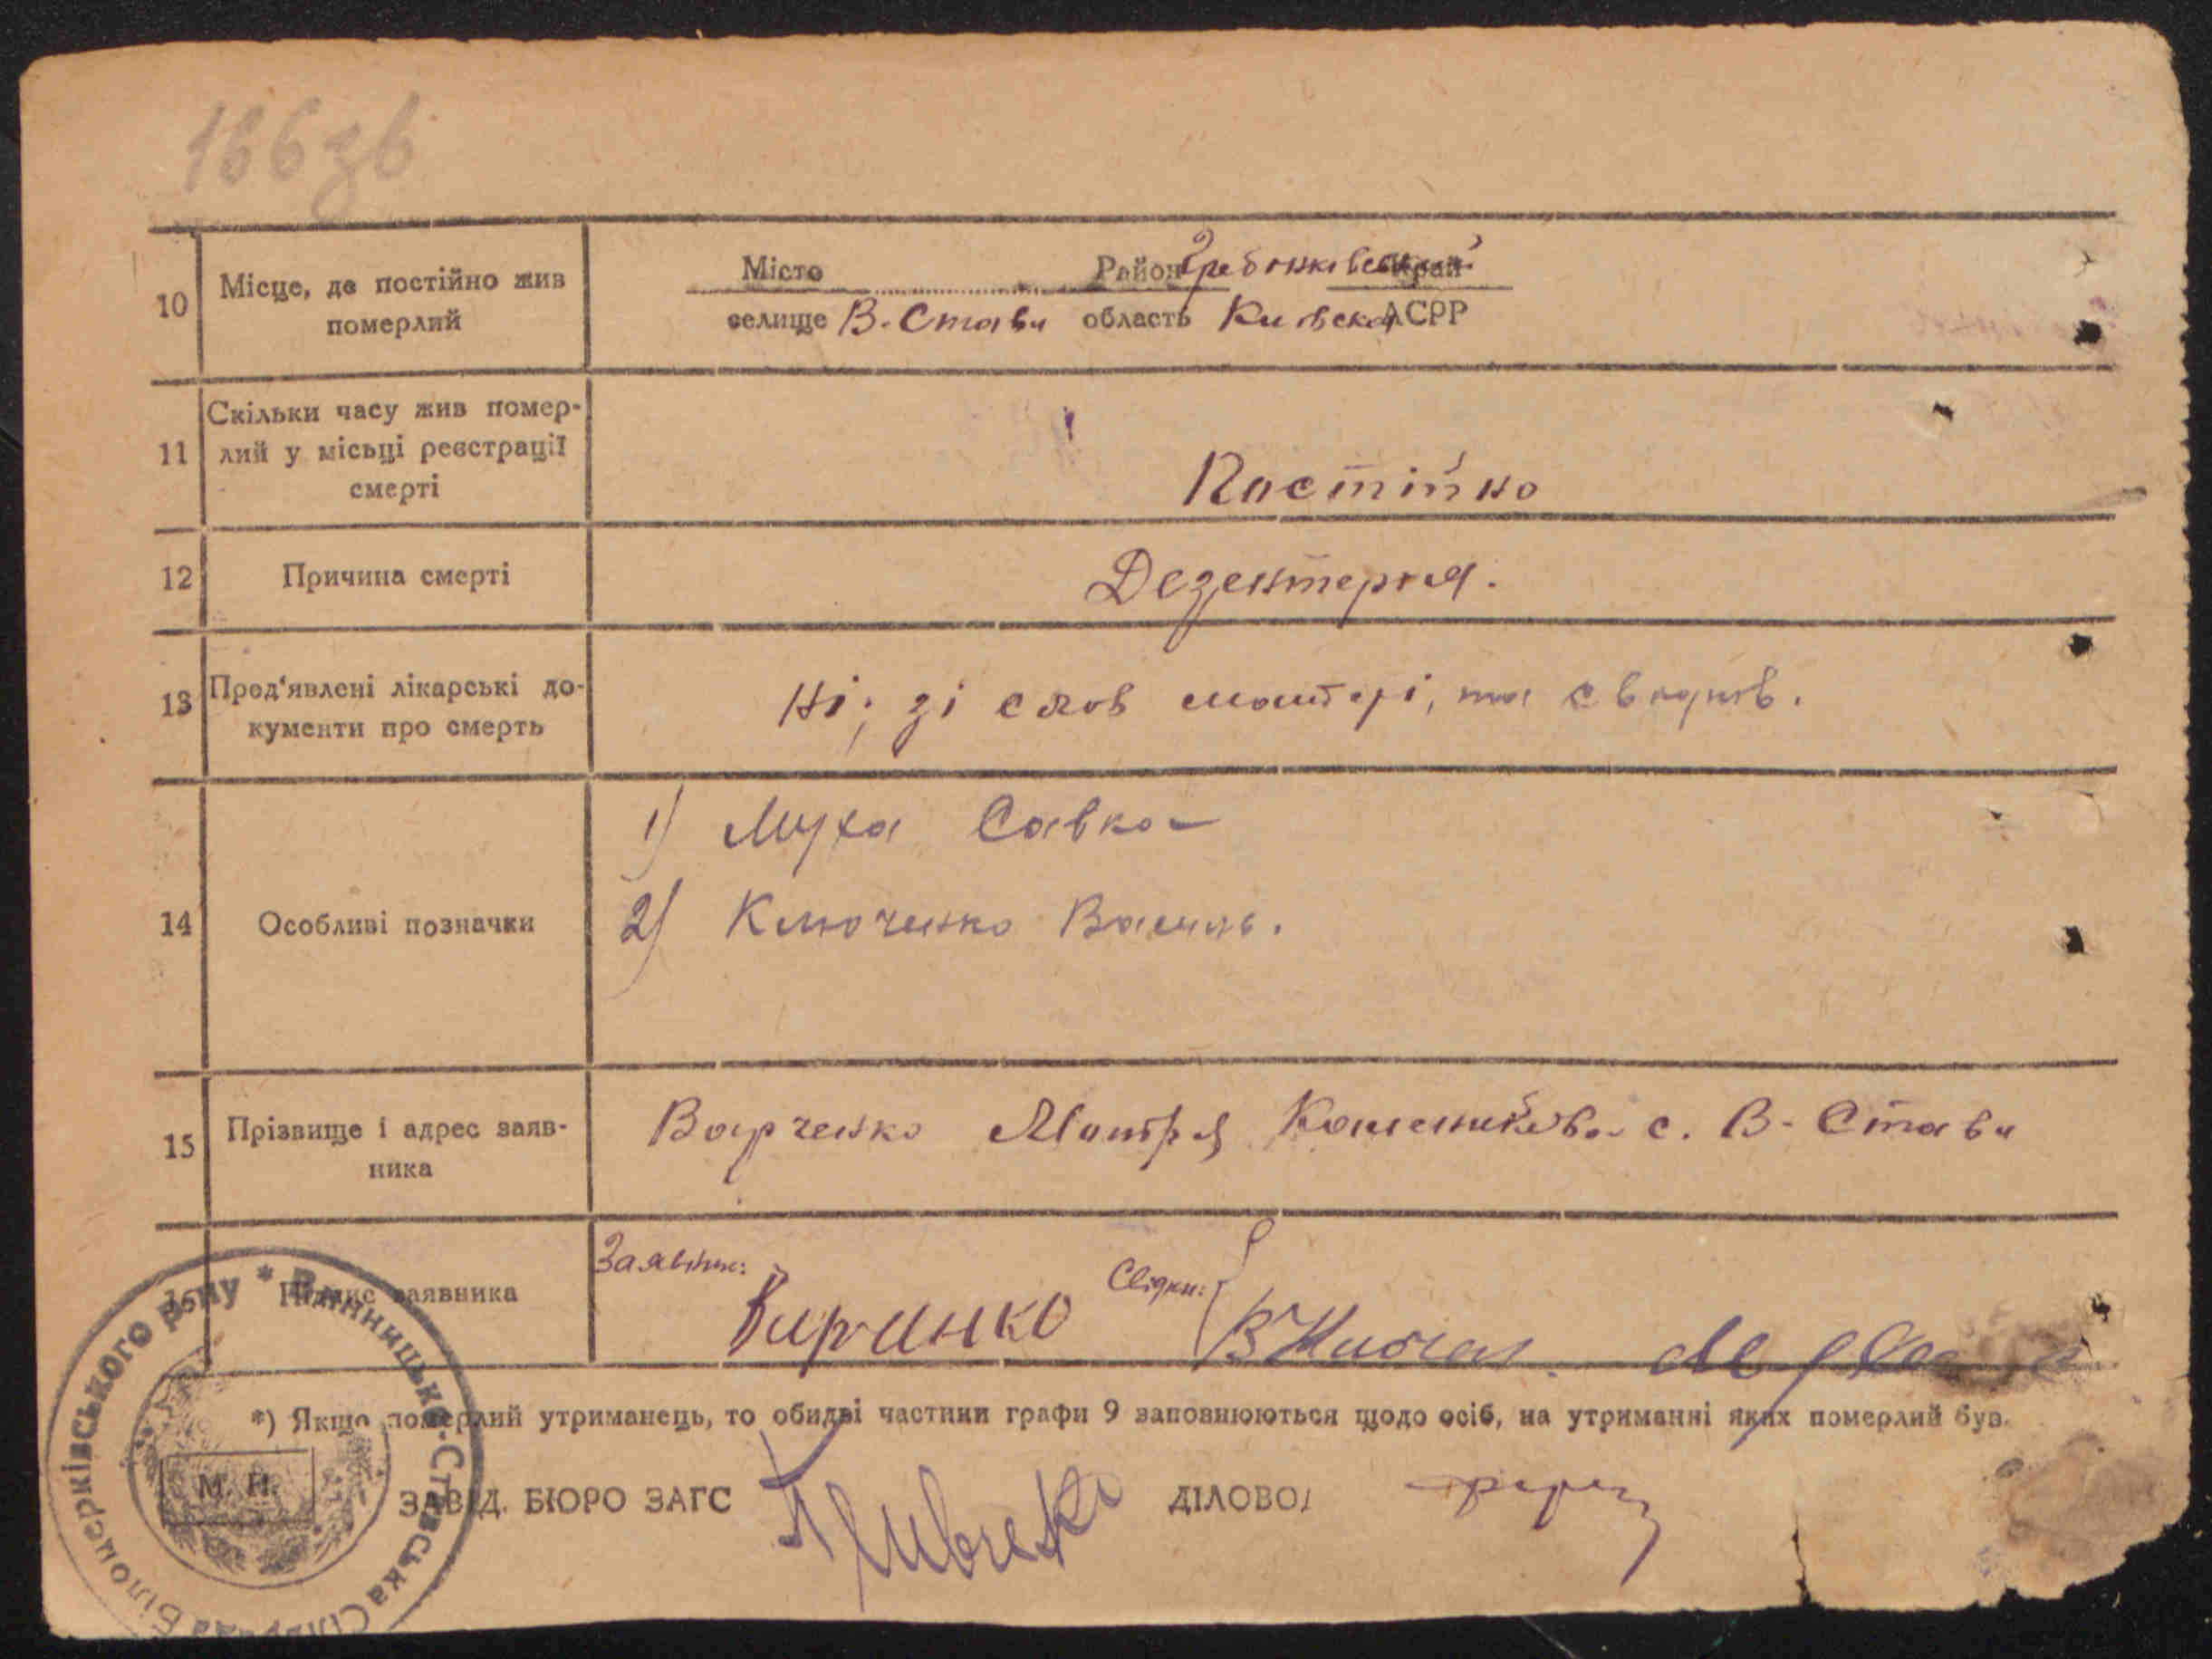 166зв
10 Місце, де постійно жив померлий
Місто Район Гребонківський край
селище В-Стави область Київска АСРР
11 Скільки часу жив померлий у місьці реєстрації смерті
Постійно
12 Причина смерті
Дезентерия.
13 Пред'явлені лікарські документи про смерть
Ні; зі слов матері, та свидків.
14 Особливі позначки
1) Муха Савка
2) Ключенко Василь.
15 Прізвище і адрес заявника
Варченко Мотря с. В-Стави
16 Підпис заявника
Заявник: Свідки:
*) Якщо померлий утриманець, то обидві частини графи 9 заповнюються щодо осіб, на утриманні яких померлий був.
М. П.
ЗАВІД. БЮРО ЗАГС ДІЛОВОД
Винницько-Ставська Сільрада Білоцерківського р-ну *